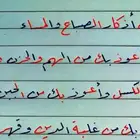 أذكار الصباح والمساء
عوذ بك من الهم والحزن
الكسل وأعوذ بك من الجبن
من غلبة الدين وقهر